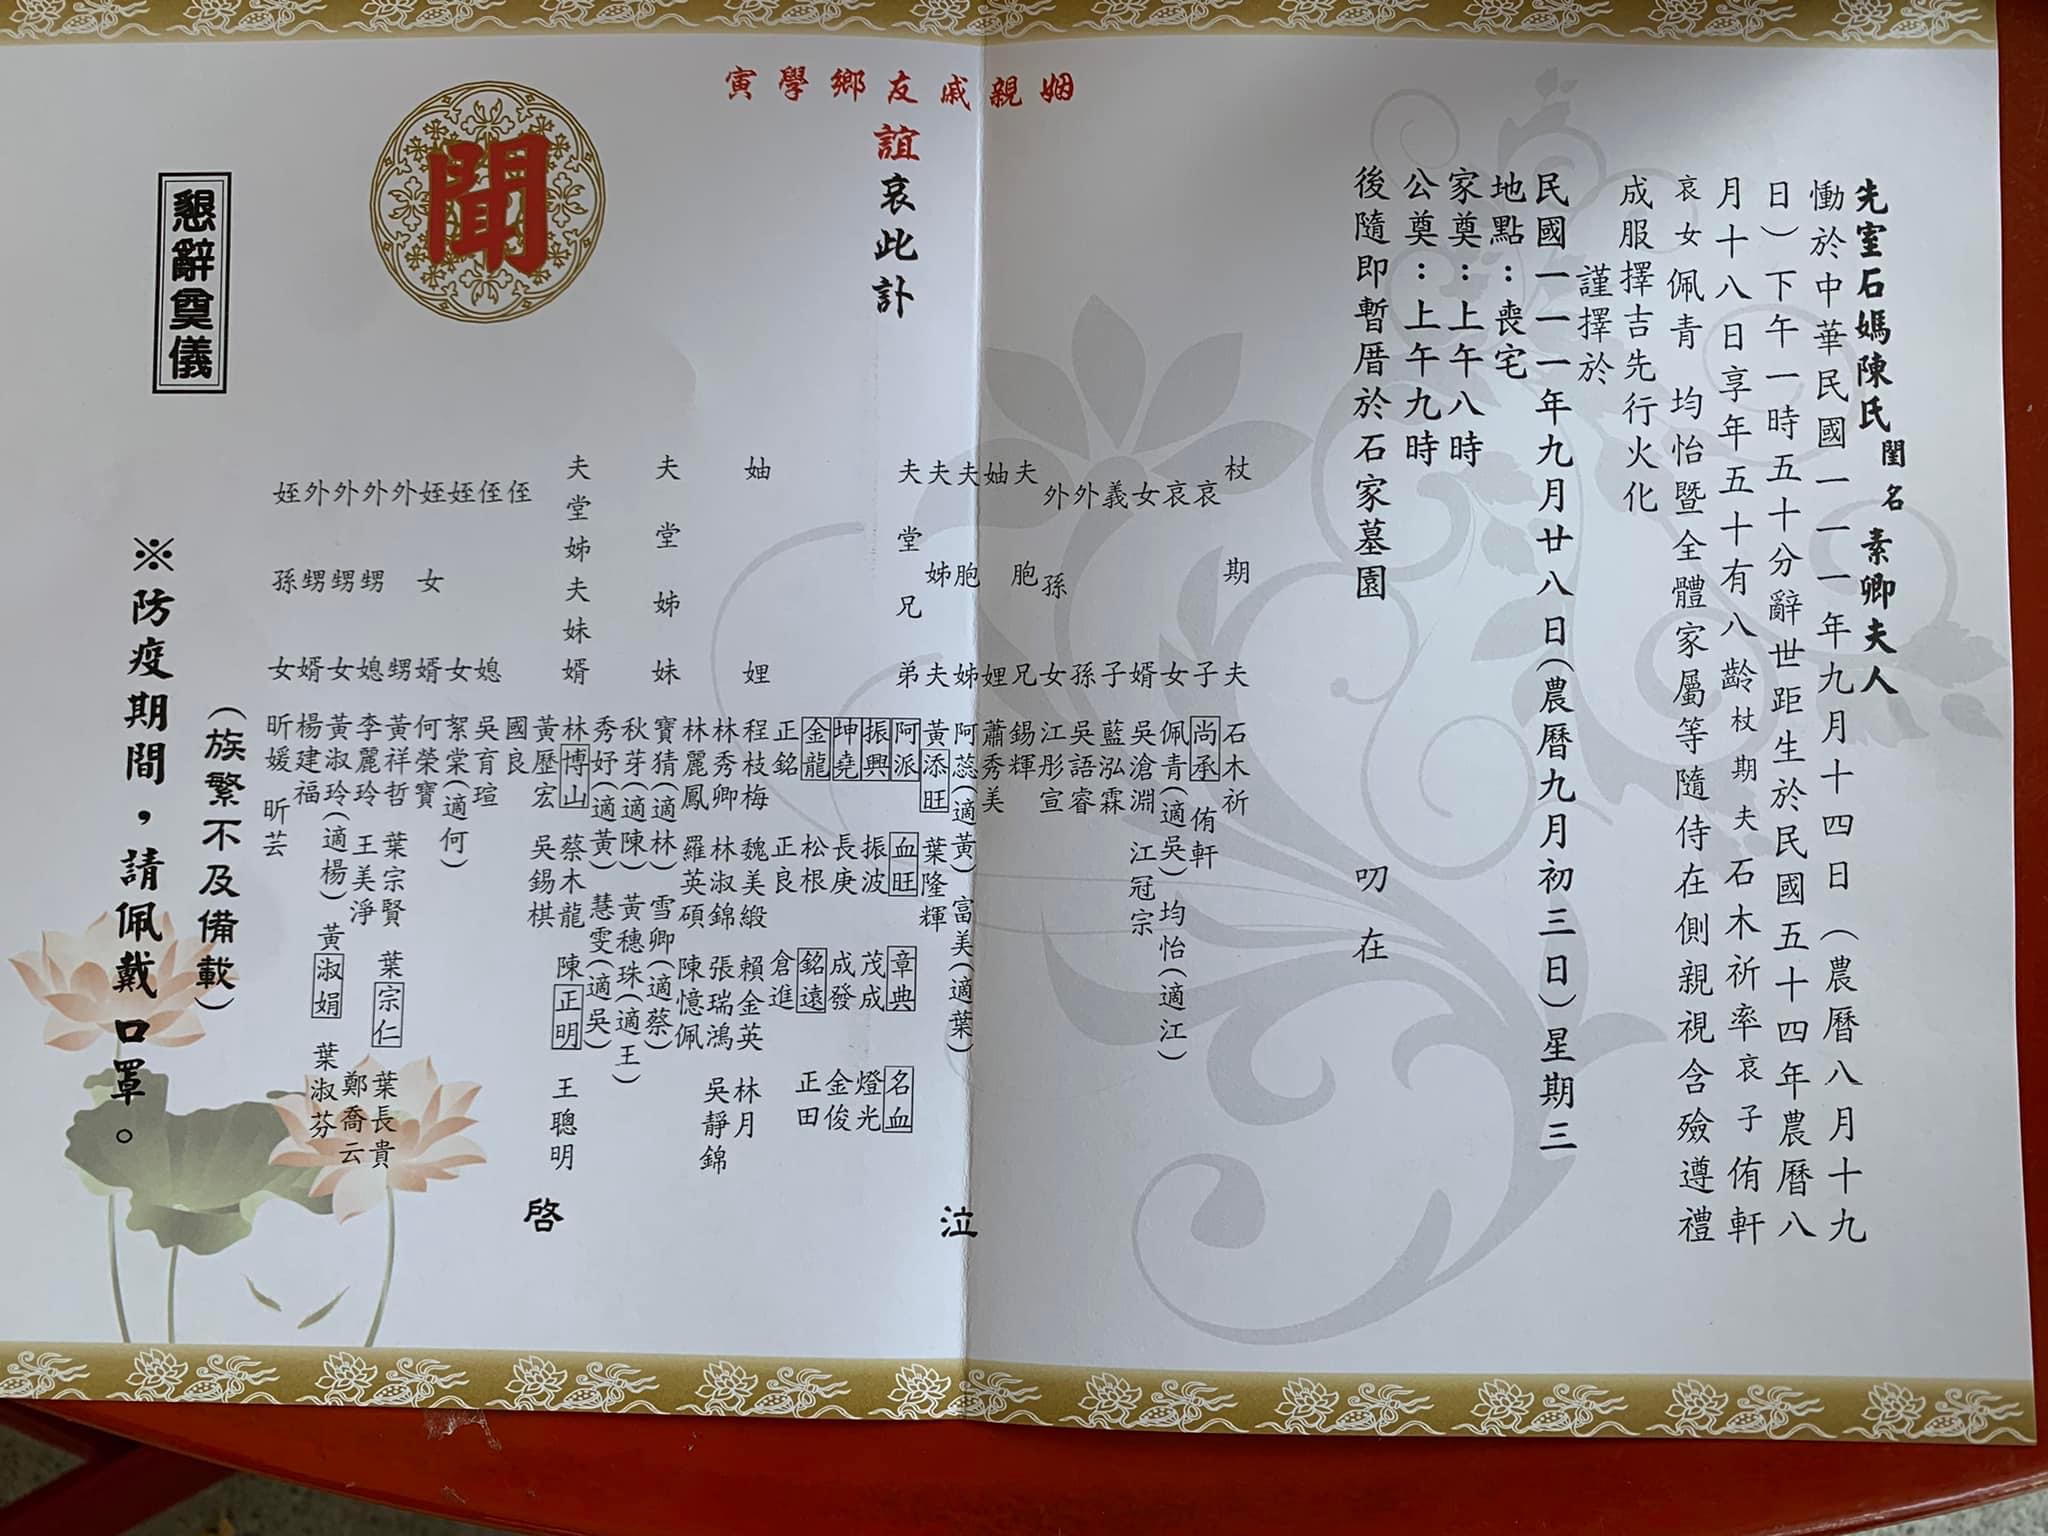 先室石媽陳氏閨名素卿夫人
慟於中華民國一一一年九月十四日（農曆八月十九
日）下午一時五十分辭世距生於民國五十四年農曆八
月十八日享年五十有八齡杖期夫石木祈率哀子侑軒
哀女佩青 均怡暨全體家屬等隨侍在側親視含殮遵禮
成服擇吉先行火化
謹擇於
民國一一一年九月廿八日（農曆九月初三日）星期三
地點：喪宅
家奠：上午八時
公奠：上午九時
後隨即暫厝於石家墓園
叨在
姻親戚友鄉學寅
誼哀此訃
聞
杖期夫 石木祈
哀子 尚承 侑軒
哀女 佩青（適吳） 均怡（適江）
女婿 吳滄淵 江冠宗
義子 藍泓霖
外孫 吳語睿
外孫女 江彤宣
夫胞兄 錫輝
妯娌 蕭秀美
夫胞姊 阿蕊（適黃） 富美（適葉）
夫姊夫 黃添旺 葉隆輝
夫堂兄弟 阿派 血旺 章典 名血
振興 振波 茂成 燈光
坤堯 長庚 成發 金俊
金龍 松根 銘遠 正田
正銘 正良 倉進
妯娌 程枝梅 魏美緞 賴金英 林月
林秀卿 林淑錦 張瑞鴻 吳靜錦
林麗鳳 羅英碩 陳憶佩
夫堂姊妹 寶猜（適林） 雪卿（適蔡）
秋芽（適陳） 黃穗珠（適王）
秀妤（適黃） 慧雯（適吳）
夫堂姊夫妹婿 林博山 蔡木龍 陳正明 王聰明
黃歷宏 吳錫棋
侄 國良
侄媳 吳育瑄
姪女 絮棠（適何）
姪女婿 何榮寶
外甥 黃祥哲 葉宗賢 葉宗仁 葉長貴
外甥媳 李麗玲 王美淨 鄭喬云
外甥女 黃淑玲（適楊） 黃淑娟 葉淑芬
外甥婿 楊建福
姪孫女 昕媛 昕芸
泣
啓
（族繁不及備載）
懇辭奠儀
※防疫期間，請佩戴口罩。